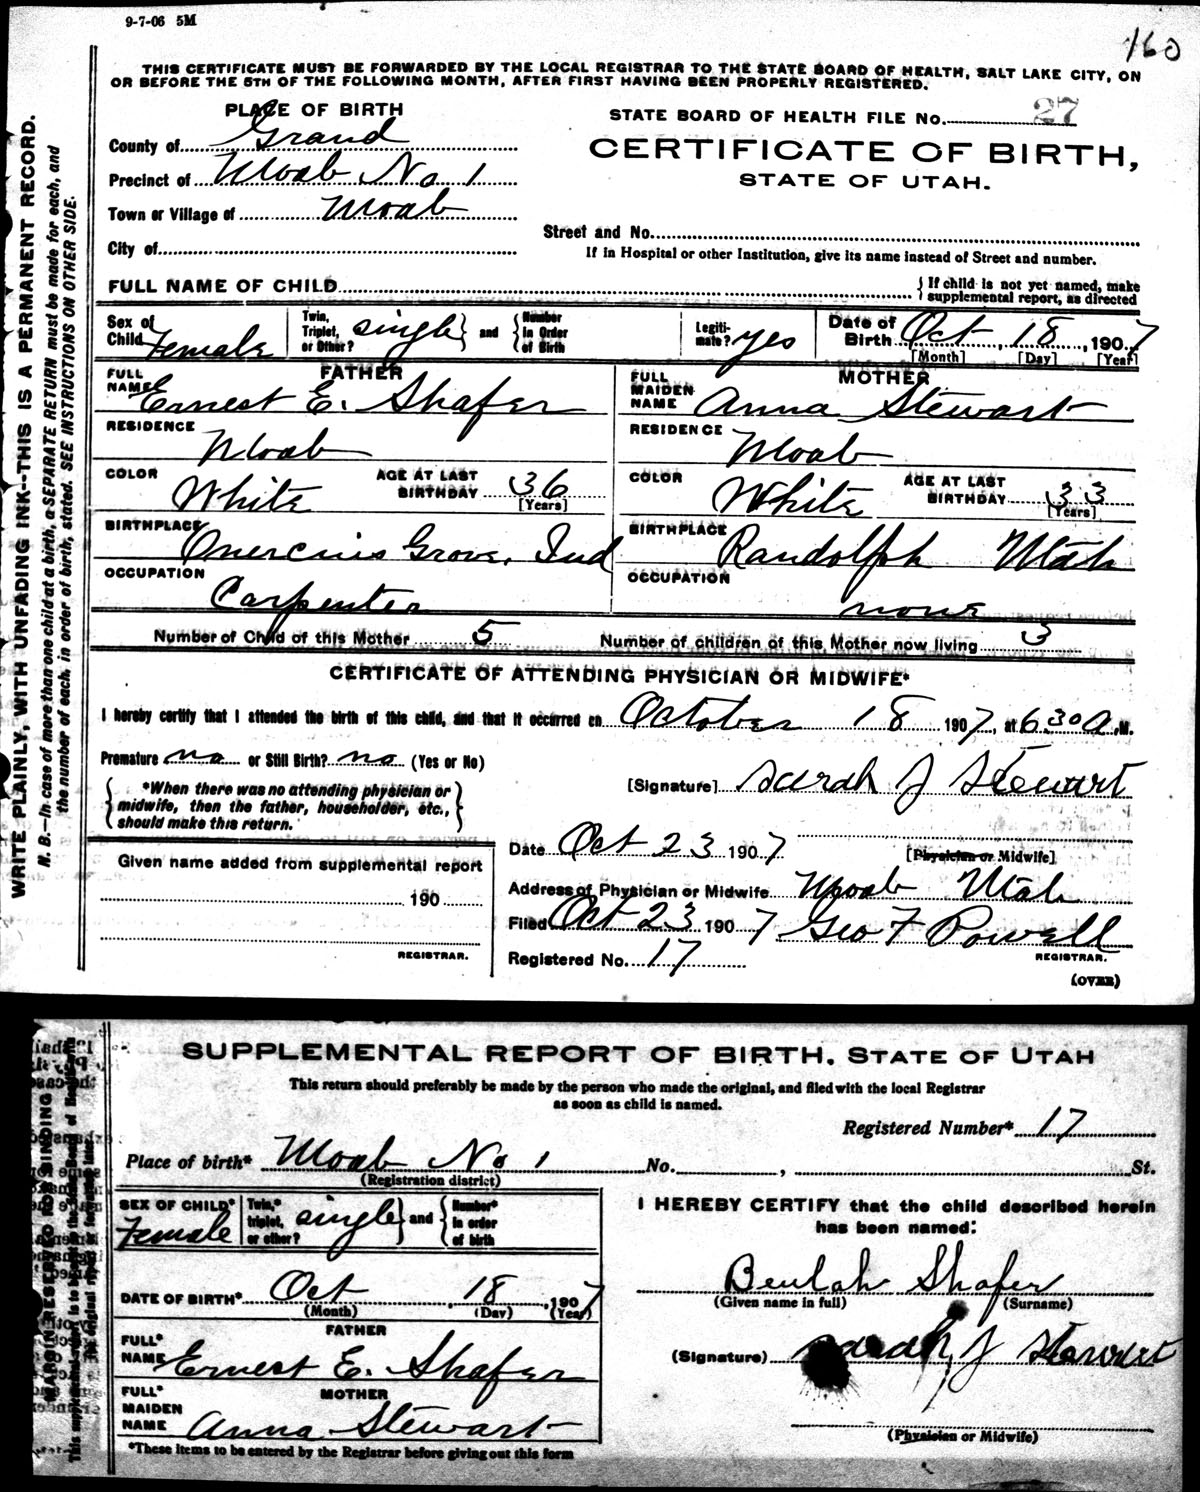 9-7-06 5M
160
THIS CERTIFICATE MUST BE FORWARDED BY THE LOCAL REGISTRAR TO THE STATE BOARD OF HEALTH, SALT LAKE CITY, ON
OR BEFORE THE 5TH OF THE FOLLOWING MONTH, AFTER FIRST HAVING BEEN PROPERLY REGISTERED.
WRITE PLAINLY, WITH UNFADING INK--THIS IS A PERMANENT RECORD.
N. B.--In case of more than one child at a birth, a SEPARATE RETURN must be made for each, and
the number of each, in order of birth, stated. SEE INSTRUCTIONS ON OTHER SIDE.
PLACE OF BIRTH
County of Grand
Precinct of Moab No 1
Town or Village of Moab
City of
STATE BOARD OF HEALTH FILE No. 27
CERTIFICATE OF BIRTH,
STATE OF UTAH.
Street and No.
If in Hospital or other Institution, give its name instead of Street and number.
FULL NAME OF CHILD
If child is not yet named, make
supplemental report, as directed
Sex of Child Female
Twin, Triplet, or Other? single and Number in Order of Birth
Legitimate? yes
Date of Birth Oct 18, 1907
[Month] [Day] [Year]
FATHER
FULL NAME Ernest E. Shafer
RESIDENCE Moab
COLOR White
AGE AT LAST BIRTHDAY 36 [Years]
BIRTHPLACE Grove, Ind
OCCUPATION Carpenter
MOTHER
FULL MAIDEN NAME Anna Stewart
RESIDENCE Moab
COLOR White
AGE AT LAST BIRTHDAY 33 [Years]
BIRTHPLACE Randolph Utah
OCCUPATION none
Number of Child of this Mother 5 Number of children of this Mother now living 3
CERTIFICATE OF ATTENDING PHYSICIAN OR MIDWIFE*
I hereby certify that I attended the birth of this child, and that it occurred on October 18 1907, at 6 30 a.M.
Premature no or Still Birth? no (Yes or No)
*When there was no attending physician or
midwife, then the father, householder, etc.,
should make this return.
[Signature] Sarah J Stewart
[Physician or Midwife]
Date Oct 23 1907
Address of Physician or Midwife Moab Utah
Filed Oct 23 1907 Geo F Powell
REGISTRAR.
Registered No. 17
(OVER)
Given name added from supplemental report
190
REGISTRAR.
SUPPLEMENTAL REPORT OF BIRTH. STATE OF UTAH
This return should preferably be made by the person who made the original, and filed with the local Registrar
as soon as child is named.
Registered Number* 17
Place of birth* Moab No 1 No. , St.
(Registration district)
MARGIN RESERVED FOR BINDING
SEX OF CHILD* Female
Twin,* triplet, or other? single and Number* in order of birth
DATE OF BIRTH* Oct 18, 1907
(Month) (Day) (Year)
FATHER
FULL* NAME Ernest E. Shafer
MOTHER
FULL* MAIDEN NAME Anna Stewart
*These items to be entered by the Registrar before giving out this form
I HEREBY CERTIFY that the child described herein
has been named:
Beulah Shafer
(Given name in full) (Surname)
(Signature) Sarah J Stewart
(Physician or Midwife)